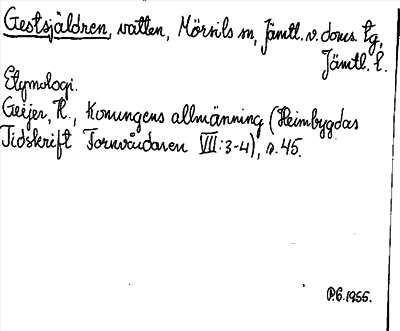 Gestsjäldren, vatten, Mörsils sn, Jämtl. v. doms. tg,
Jämtl. l.
Etymologi.
Geijer, H., Konungens allmänning (Heimbygdas
Tidskrift Fornvårdaren VIII:3-4), s. 45.
P.G. 1955.